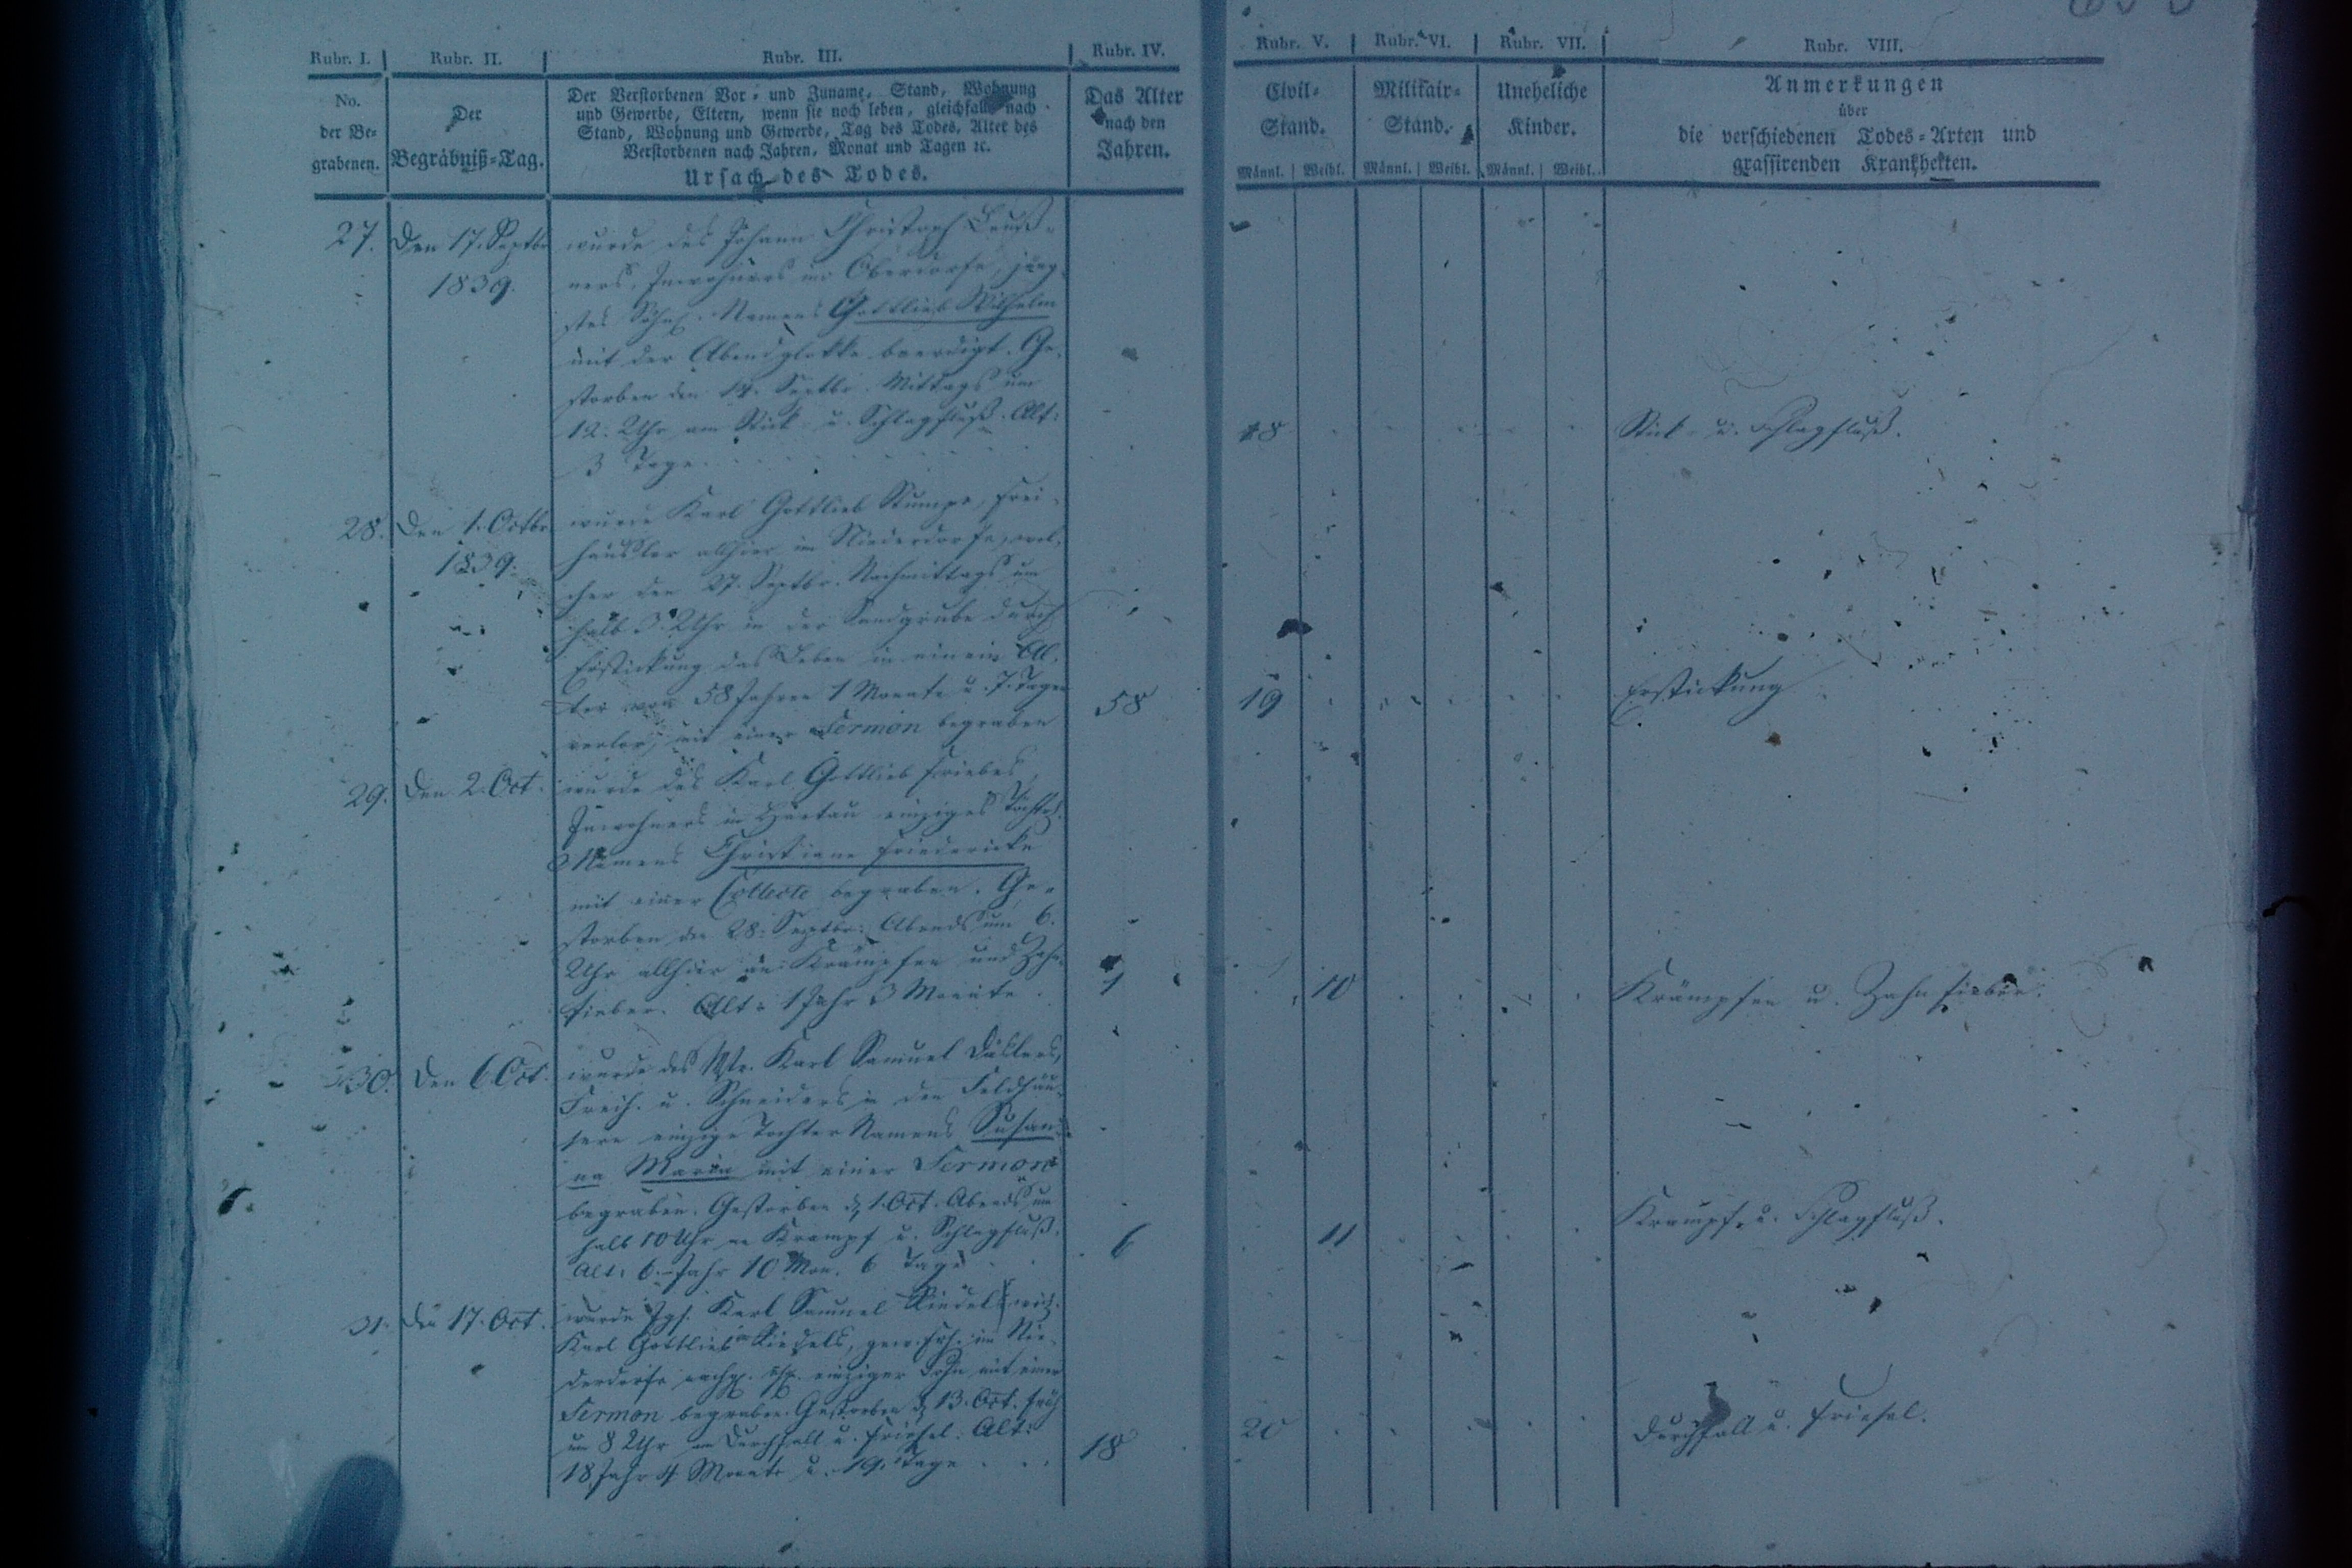 Rubr. I.
Rubr. II.
Rubr. III.
Rubr. IV.
Rubr. V.
Rubr. VI.
Rubr. VII.
Rubr. VIII.
No.
der Be=
grabenen.
Der
Begräbniß=Tag.
Der Verstorbenen Vor= und Zuname, Stand, Wohnung
und Gewerbe, Eltern, wenn sie noch leben, gleichfalls nach
Stand, Wohnung und Gewerbe, Tag des Todes, Alter des
Verstorbenen nach Jahren, Monat und Tagen ꝛc.
Ursach des Todes.
Das Alter
nach den
Jahren.
Civil=
Stand.
Männl. Weibl.
Militair=
Stand.
Männl. Weibl.
Uneheliche
Kinder.
Männl. Weibl.
Anmerkungen
über
die verschiedenen Todes=Arten und
grassirenden Krankheiten.
27. Den 17. Septbr
1839.
wurde des Johann Christoph
Inwohners im Oberdorfe, jüng=
stes Söhnl. Namens Gottlieb Wilhelm
mit der Abendglokke beerdigt. Ge=
storben den 14. Septbr. Mittags um
12. Uhr am Stick= u. Schlagfluß. Alt:
3 Tage.
18
Stick= u. Schlagfluß.
28. Den 1. Octbr
1839.
wurde Karl Gottlieb Stumpe, Frei=
häusler allhier im Niederdorfe, wel=
cher den 27. Septbr. Nachmittags um
halb 3 Uhr in der Sandgrube durch
Erstickung das Leben in einem Al=
ter von 58 Jahren 1 Monate u. 7. Tagen
verlor, mit einer Sermon begraben
58
19
Erstickung
29. Den 2. Oct.
wurde des Karl Gottlieb Friebes,
Inwohners in Hartau einziges Töchterl.
Namens Christiane Friedericke
mit einer Collecte begraben. Ge=
storben den 28. Septbr. Abends um 6.
Uhr allhier an Krämpfen und Zahn=
fieber. Alt: 1 Jahr 3 Monate.
1
10
Krämpfen u. Zahnfieber.
30. Den 6 Oct.
wurde des Mstr. Karl Samuel
Freih. u. Schneiders in den Feldhäu=
sern einzige Tochter Namens Susan=
na Maria mit einer Sermon
begraben. Gestorben d. 1. Oct. Abends um
halb 10 Uhr an Krampf u. Schlagfluß.
Alt: 6. Jahr 10 Mon. 6 Tage
6
11
Krampf= u. Schlagfluß.
31. Den 17. Oct.
wurde Jgs. Karl Samuel Riedel,
Karl Gottlieb Riedels, gew. Frh. im Nie=
derdorfe einziger Sohn mit einer
Sermon begraben. Gestorben d. 13. Oct. früh
um 8 Uhr an Durchfall u. Friesel. Alt:
18 Jahr 4 Monate u. 19. Tage
18
20
Durchfall u. Friesel.